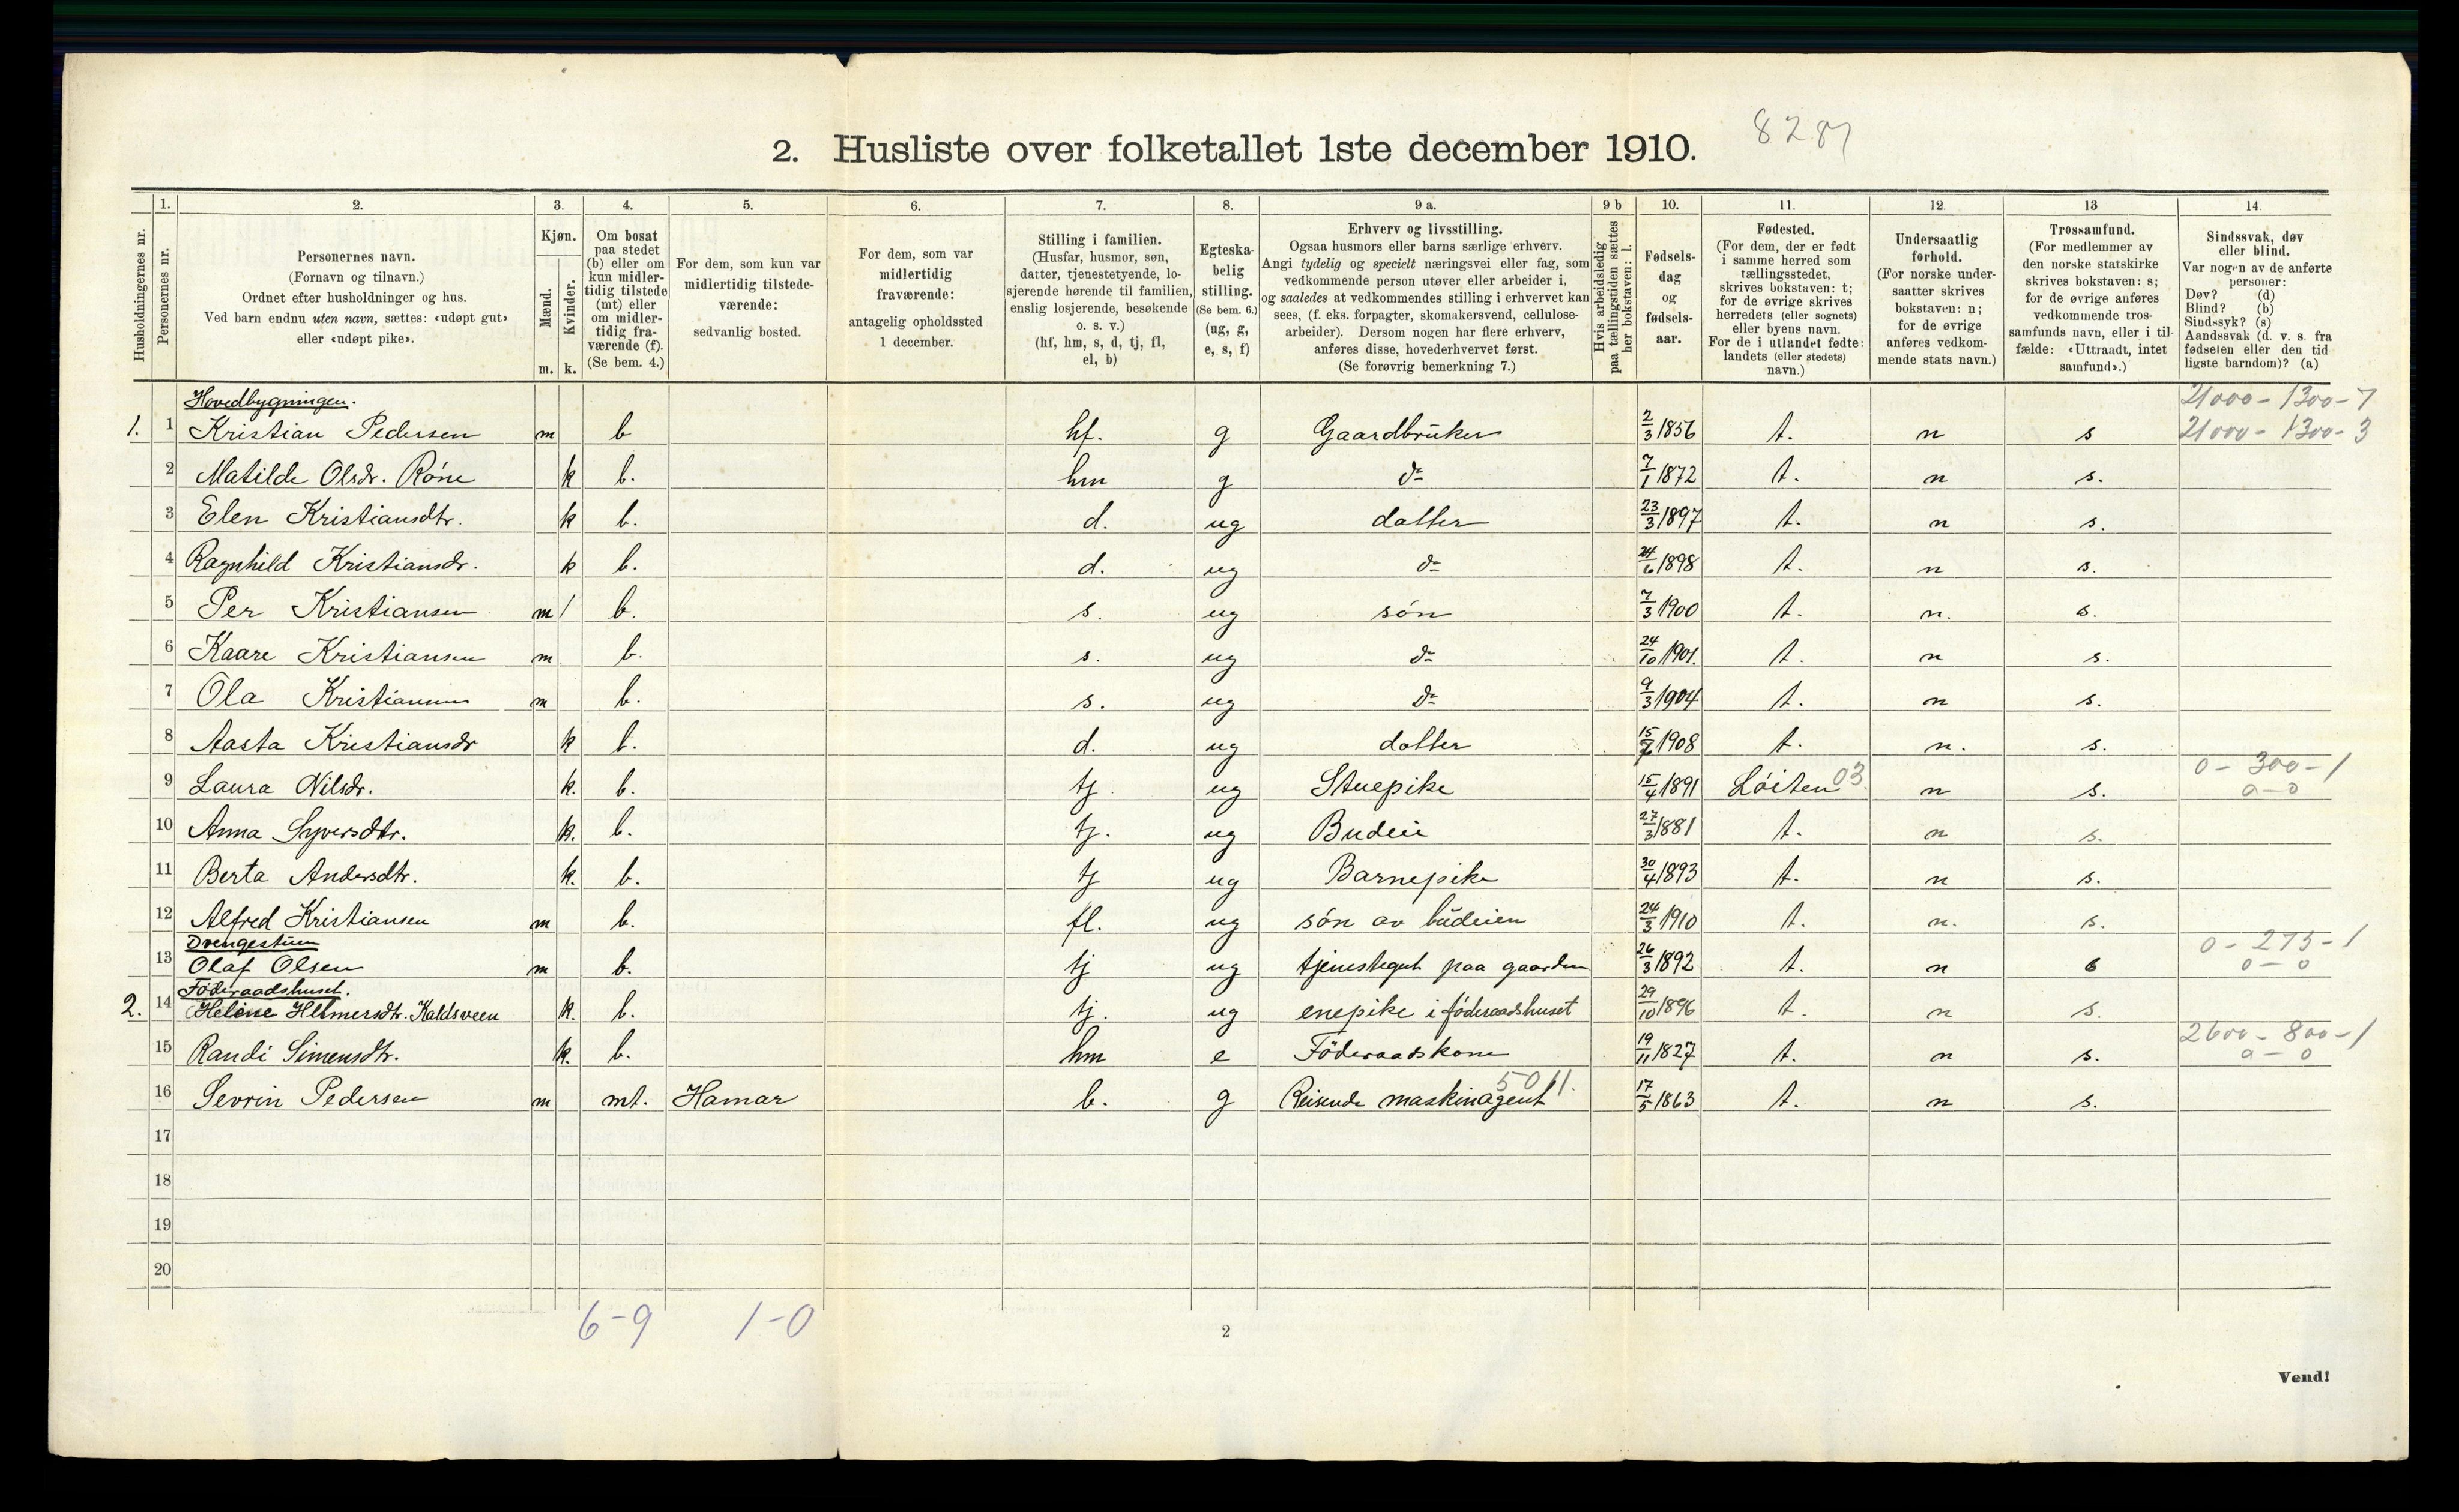 2. Husliste over folketallet 1ste december 1910. 8287
1. 2. 3. 4. 5. 6. 7. 8. 9 a. 9 b 10. 11. 12. 13 14.
Husholdningernes nr.
Personernes nr.
Personernes navn.
(Fornavn og tilnavn.)
Ordnet efter husholdninger og hus.
Ved barn endnu uten navn, sættes: «udøpt gut»
eller «udøpt pike».
Kjøn.
Mænd.
Kvinder.
m. k.
Om bosat
paa stedet
(b) eller om
kun midler-
tidig tilstede
(mt) eller
om midler-
tidig fra-
værende (f).
(Se bem. 4.)
For dem, som kun var
midlertidig tilstede-
værende:
sedvanlig bosted.
For dem, som var
midlertidig
fraværende:
antagelig opholdssted
1 december.
Stilling i familien.
(Husfar, husmor, søn,
datter, tjenestetyende, lo-
sjerende hørende til familien,
enslig losjerende, besøkende
o. s. v.)
(hf, hm, s, d, tj, fl,
el, b)
Egteska-
belig
stilling.
(Se bem. 6.)
(ug, g,
e, s, f)
Erhverv og livsstilling.
Ogsaa husmors eller barns særlige erhverv.
Angi tydelig og specielt næringsvei eller fag, som
vedkommende person utøver eller arbeider i,
og saaledes at vedkommendes stilling i erhvervet kan
sees, (f. eks. forpagter, skomakersvend, cellulose-
arbeider). Dersom nogen har flere erhverv,
anføres disse, hovederhvervet først.
(Se forøvrig bemerkning 7.)
Hvis arbeidsledig
paa tællingstiden sættes
her bokstaven: l.
Fødsels-
dag
og
fødsels-
aar.
Fødested.
(For dem, der er født
i samme herred som
tællingsstedet,
skrives bokstaven: t;
for de øvrige skrives
herredets (eller sognets)
eller byens navn.
For de i utlandet fødte:
landets (eller stedets)
navn.)
Undersaatlig
forhold.
(For norske under-
saatter skrives
bokstaven: n;
for de øvrige
anføres vedkom-
mende stats navn.)
Trossamfund.
(For medlemmer av
den norske statskirke
skrives bokstaven: s;
for de øvrige anføres
vedkommende tros-
samfunds navn, eller i til-
fælde: «Uttraadt, intet
samfund».)
Sindssvak, døv
eller blind.
Var nogen av de anførte
personer:
Døv? (d)
Blind? (b)
Sindssyk? (s)
Aandssvak (d. v. s. fra
fødselen eller den tid
ligste barndom)? (a)
Hovedbygningen. 21000 - 1300 - 7
1. 1 Kristian Pedersen m b hf. g Gaardbruker 2/3 1856 t. n s 21000 - 1300 - 3
2 Matilde Olsdr. Røne k b. hm g do 7/1 1872 t. n s.
3 Elen Kristiansdtr. k b. d. ug datter 23/3 1897 t. n s.
4 Ragnhild Kristiansdr. k b. d. ug do 24/6 1898 t. n s.
5 Per Kristiansen m b. s. ug søn 7/3 1900 t. n. s.
6 Kaare Kristiansen m b. s. ug do 24/10 1901. t. n s.
7 Ola Kristiansen m b. s. ug do 9/3 1904 t. n s.
8 Aasta Kristiansdr k b. d. ug datter 15/ 1908 t. n. s.
0 - 300 - 1
9 Laura Nilsdr. k. b. tj. ug Stuepike 15/4 1891 Løiten 03. n s. 0 - 0
10 Anna Syversdtr. k. b. tj. ug Budeie 27/3 1881 t. n s.
11 Berta Andersdtr. k. b. tj ug Barnepike 30/4 1893 t. n s.
12 Alfred Kristiansen m b. fl. ug søn av budeien 24/3 1910 t. n. s.
Drengestuen 0 - 275 - 1
13 Olaf Olsen m b. tj ug tjenestegut paa gaarden 26/3 1892 t. n s 0 - 0
Føderaadshuset.
2. 14 Helene Helmersdtr. Kaldsveen k. b. tj. ug enepike i føderaadshuset 29/10 1896 t. n s.
2600 - 800 - 1
15 Randi Simensdtr. k. b. hm e Føderaadskone 19/11 1827 t. n s. 0 - 0
5011.
16 Sevrin Pedersen m mt. Hamar b. g Reisende maskinagent 17/5 1863 t. n s.
17
18
19
20
6-9 1-0
2
Vend!